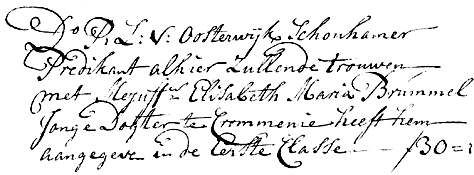 Do P: L: V: Oosterwijk Schonhamer
Predikant alhier zullende trouwen
met Mejuffr Elisabeth Maria Brummel
Jonge Dogter te Crommenie heeft hem
aangegeve in de Eerste Classe — f30=: